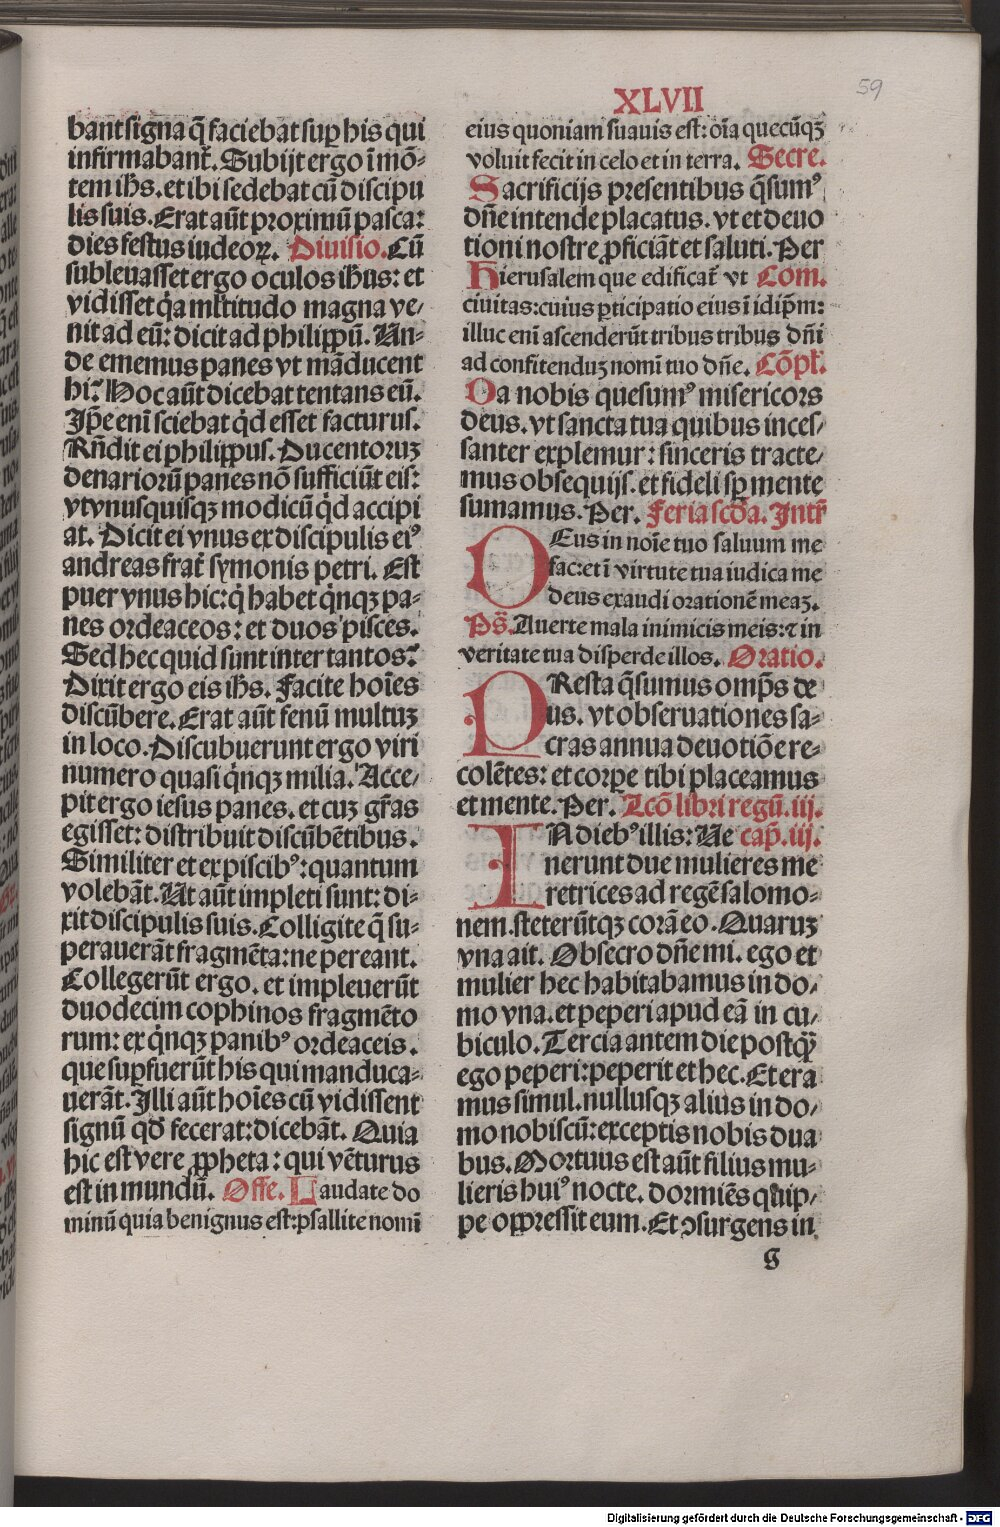 59
XLVII
bant signa q̃ faciebat suꝑ his qui
infirmabant᷑. Subijt ergo ĩ mõ-
tem ihs. et ibi sedebat cũ discipu
lis suis. Erat aũt proximũ pasca:
dies festus iudeoꝝ. Diuisio. Cũ
subleuasset ergo oculos ihus: et
vidisset q̃a ml̃titudo magna ve/
nit ad eũ: dicit ad philippũ. Un-
de ememus panes vt mãducent
hi? Hoc aũt dicebat tentans eũ.
Ip̃e eni sciebat q̃d esset facturus.
Rñdit ei philippus. Ducentoruꝫ
denariorũ panes nõ sufficiũt eis:
vt vnusquisqꝫ modicũ q̃d accipi
at. Dicit ei vnus ex discipulis eiꝰ
andreas frat᷑ symonis petri. Est
puer vnus hic: q̃ habet q̃nqꝫ pa-
nes ordeaceos: et duos pisces.
Sed hec quid sunt inter tantos?
Dixit ergo eis ihs. Facite hoĩes
discũbere. Erat aũt fenũ multuꝫ
in loco. Discubuerunt ergo viri
numero quasi q̃nqꝫ milia. Acce/
pit ergo iesus panes. et cuꝫ gr̃as
egisset: distribuit discũbẽtibus.
Similiter et ex piscibꝰ: quantum
volebãt. Ut aũt impleti sunt: di-
xit discipulis suis. Colligite q̃ su-
perauerãt fragmẽta: ne pereant.
Collegerũt ergo. et impleuerũt
duodecim cophinos fragmẽto
rum: ex q̃nqꝫ panibꝰ ordeaceis.
que suꝑfuerũt his qui manduca-
uerãt. Illi aũt hoĩes cũ vidissent
signũ qd̃ fecerat: dicebãt. Quia
hic est vere ꝓpheta: qui vẽturus
est in mundũ. Offe. Laudate do
minũ quia benignus est: psallite nomĩ
eius quoniam suauis est: oĩa quecũqꝫ
voluit fecit in celo et in terra. Secre.
Sacrificijs presentibus q̃sumꝰ
dñe intende placatus. vt et deuo
tioni nostre ꝓficiãt et saluti. Per
Hierusalem que edificat᷑ vt Com.
ciuitas: cuius ꝑticipatio eius ĩ idip̃m:
illuc enĩ ascenderũt tribus tribus dñi
ad confitenduꝫ nomĩ tuo dñe. Cõpl᷑.
Da nobis quesumꝰ misericors
deus. vt sancta tua quibus inces/
santer explemur: sinceris tracte/
mus obsequijs. et fideli sꝑ mente
sumamus. Per. Feria scd̃a. Intr᷑
DEus in noĩe tuo saluum me
fac: et ĩ virtute tua iudica me
deus exaudi orationẽ meaꝫ.
Ps̃. Auerte mala inimicis meis: ⁊ in
veritate tua disperde illos. Oratio.
PResta q̃sumus omp̃s de
us. vt obseruationes sa-
cras annua deuotiõe re-
colẽtes: et corꝑe tibi placeamus
et mente. Per. Lcõ libri regũ. iij.
IN diebꝰ illis: Ue cap̃. iij.
nerunt due mulieres me
retrices ad regẽ salomo-
nem. steterũtqꝫ corã eo. Quaruꝫ
vna ait. Obsecro dñe mi. ego et
mulier hec habitabamus in do/
mo vna. et peperi apud eã in cu/
biculo. Tercia antem die postq̃ꝫ
ego peperi: peperit et hec. Et era
mus simul. nullusqꝫ alius in do/
mo nobiscũ: exceptis nobis dua
bus. Mortuus est aũt filius mu-
lieris huiꝰ nocte. dormiẽs quip/
pe oppressit eum. Et ꝯsurgens in
g
Digitalisierung gefördert durch die Deutsche Forschungsgemeinschaft - DFG